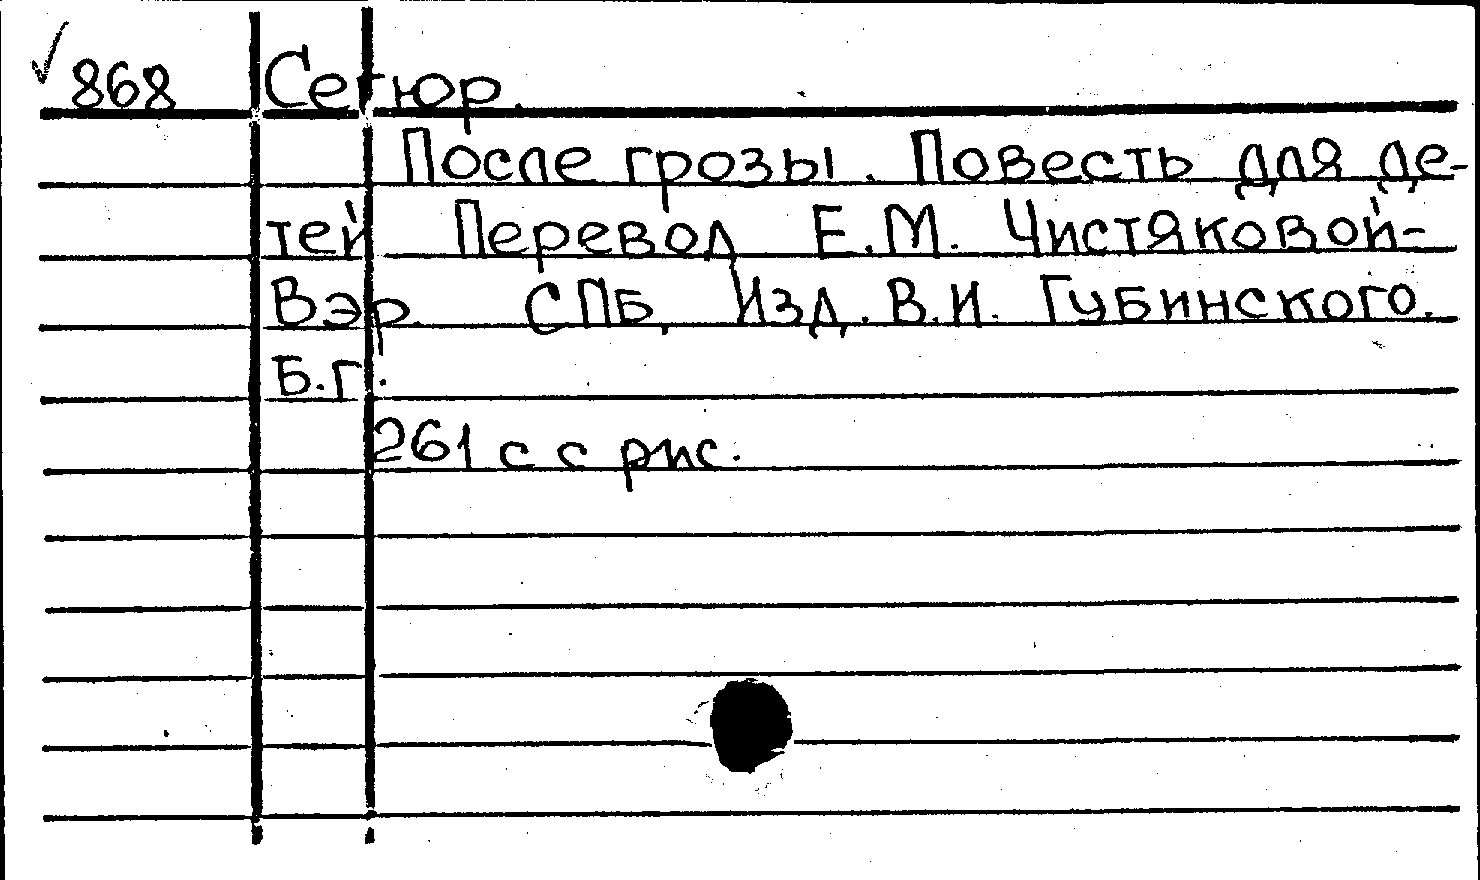 √868 Сегюр.
После грозы. Повесть для де-
тей Перевод Е.М. Чистяковой-
Вэр. СПБ, Изд. В.И. Губинского.
Б.г.
261 с с рис.